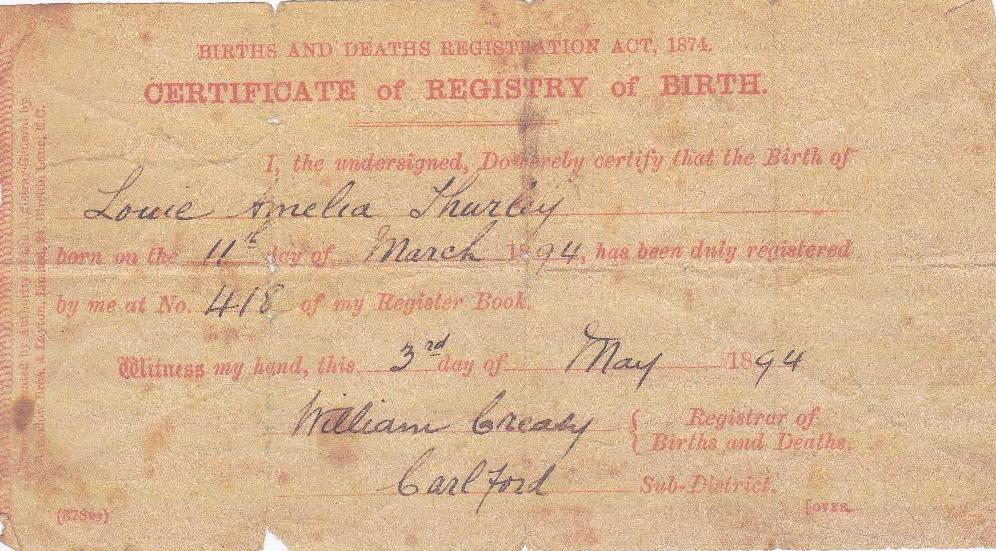 BIRTHS AND DEATHS REGISTRATION ACT, 1874.
CERTIFICATE of REGISTRY of BIRTH.
I, the undersigned, Do hereby certify that the Birth of
Louie Amelia Thurley
born on the 11th day of March 1894, has been duly registered
by me at No. 418 of my Register Book.
Witness my hand, this 3rd day of May 1894
William Creasy { Registrar of
Births and Deaths.
Carlford Sub-District.
[OVER.